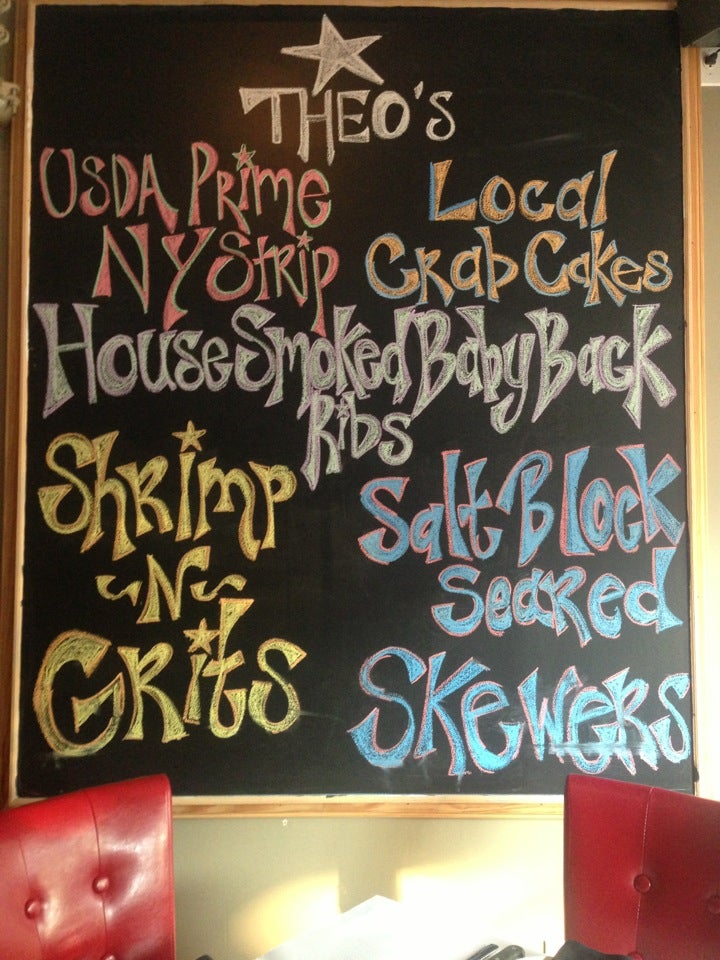 THEO'S
USDA PRIME
NY Strip
Local
Crab Cakes
House Smoked Baby Back
Ribs
Shrimp
~N~
Grits
Salt Block
Seared
Skewers